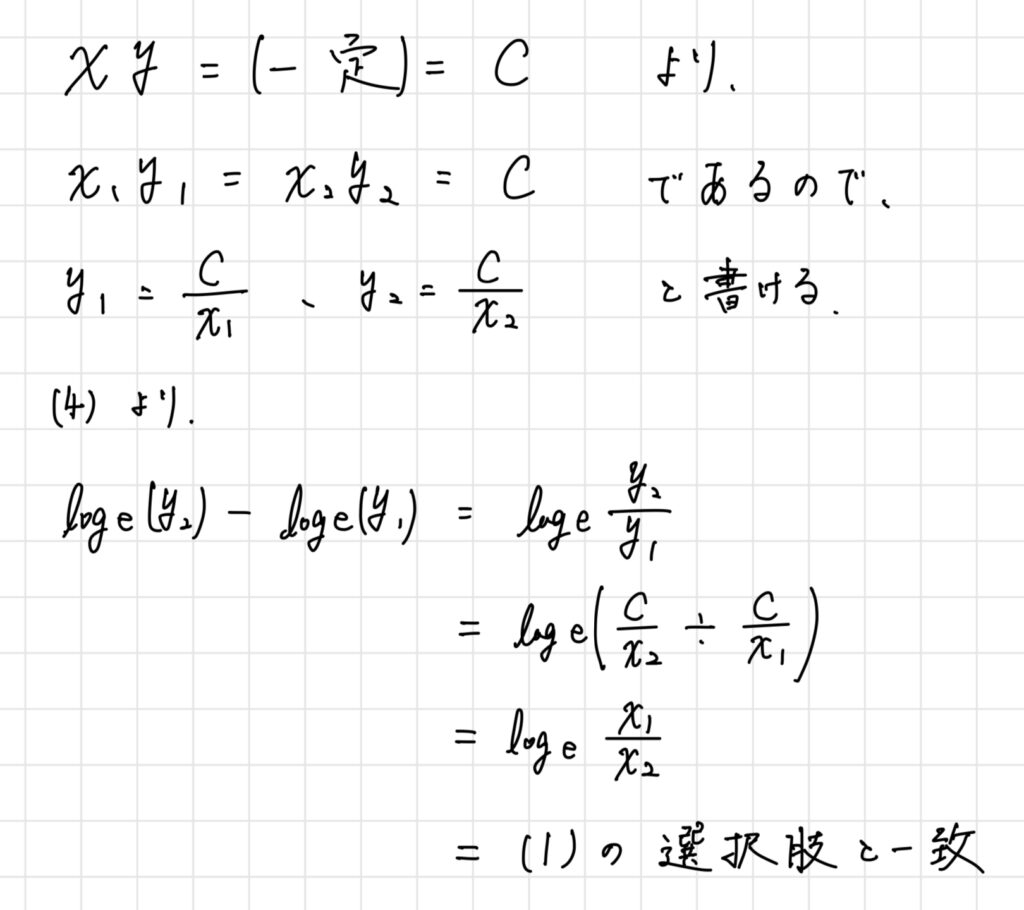 xy = (一定) = C より.
x₁y₁ = x₂y₂ = C であるので、
y₁ = C/x₁ 、 y₂ = C/x₂ と書ける.
(4) より.
log e(y₂) - log e(y₁) = log e y₂/y₁
= log e(C/x₂ ÷ C/x₁)
= log e x₁/x₂
= (1) の 選択肢と一致